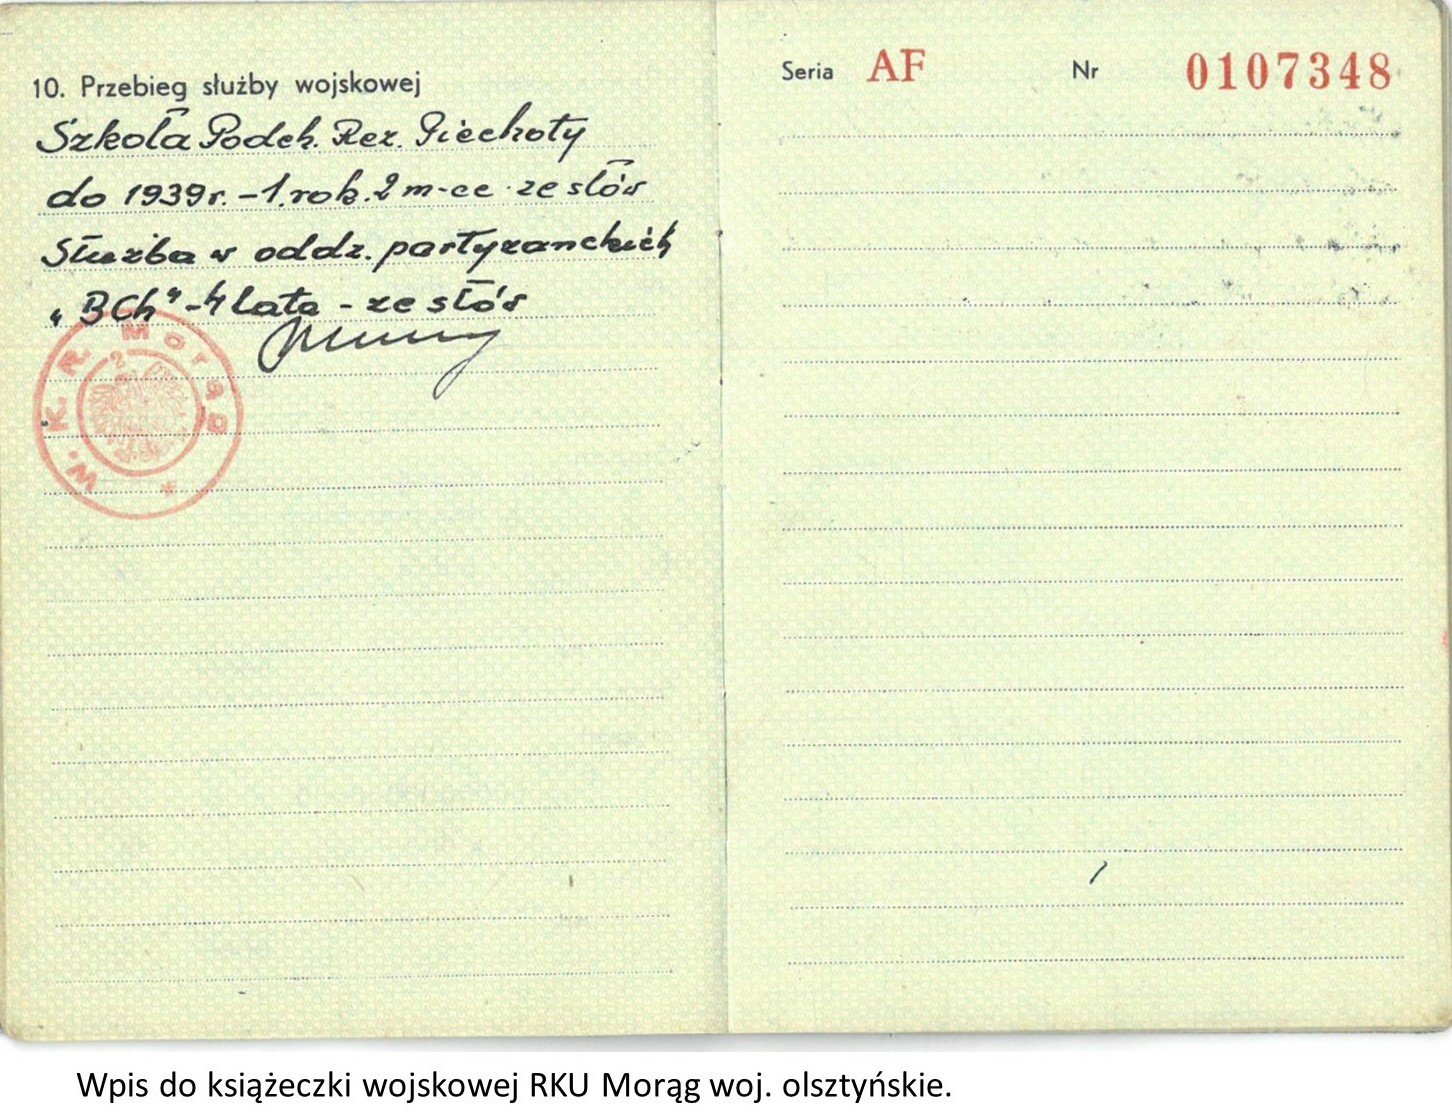 10. Przebieg służby wojskowej
Szkoła Podch. Rez. Piechoty
do 1939r. – 1. rok. 2 m-ce ze słów
Służba w oddz. partyzanckich
„BCh" – 4 lata – ze słów
W. K. R. Morąg *
2
Seria AF Nr 0107348
Wpis do książeczki wojskowej RKU Morąg woj. olsztyńskie.